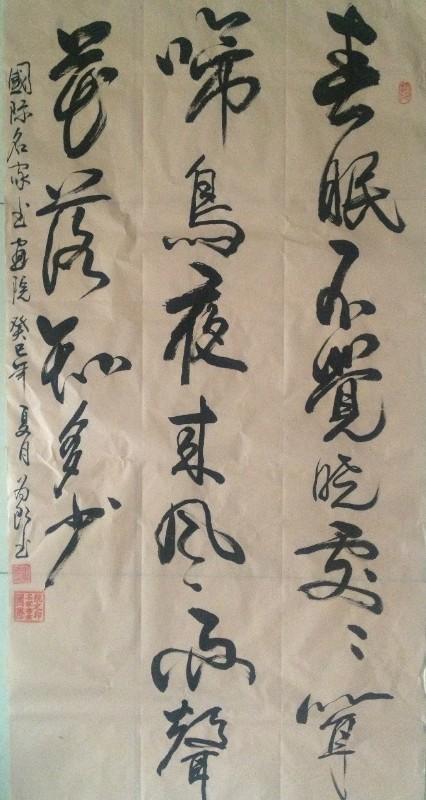 春眠不覺曉處〻聞
啼鳥夜来風雨聲
花落知多少
國际名家书畫院 癸巳年 夏月